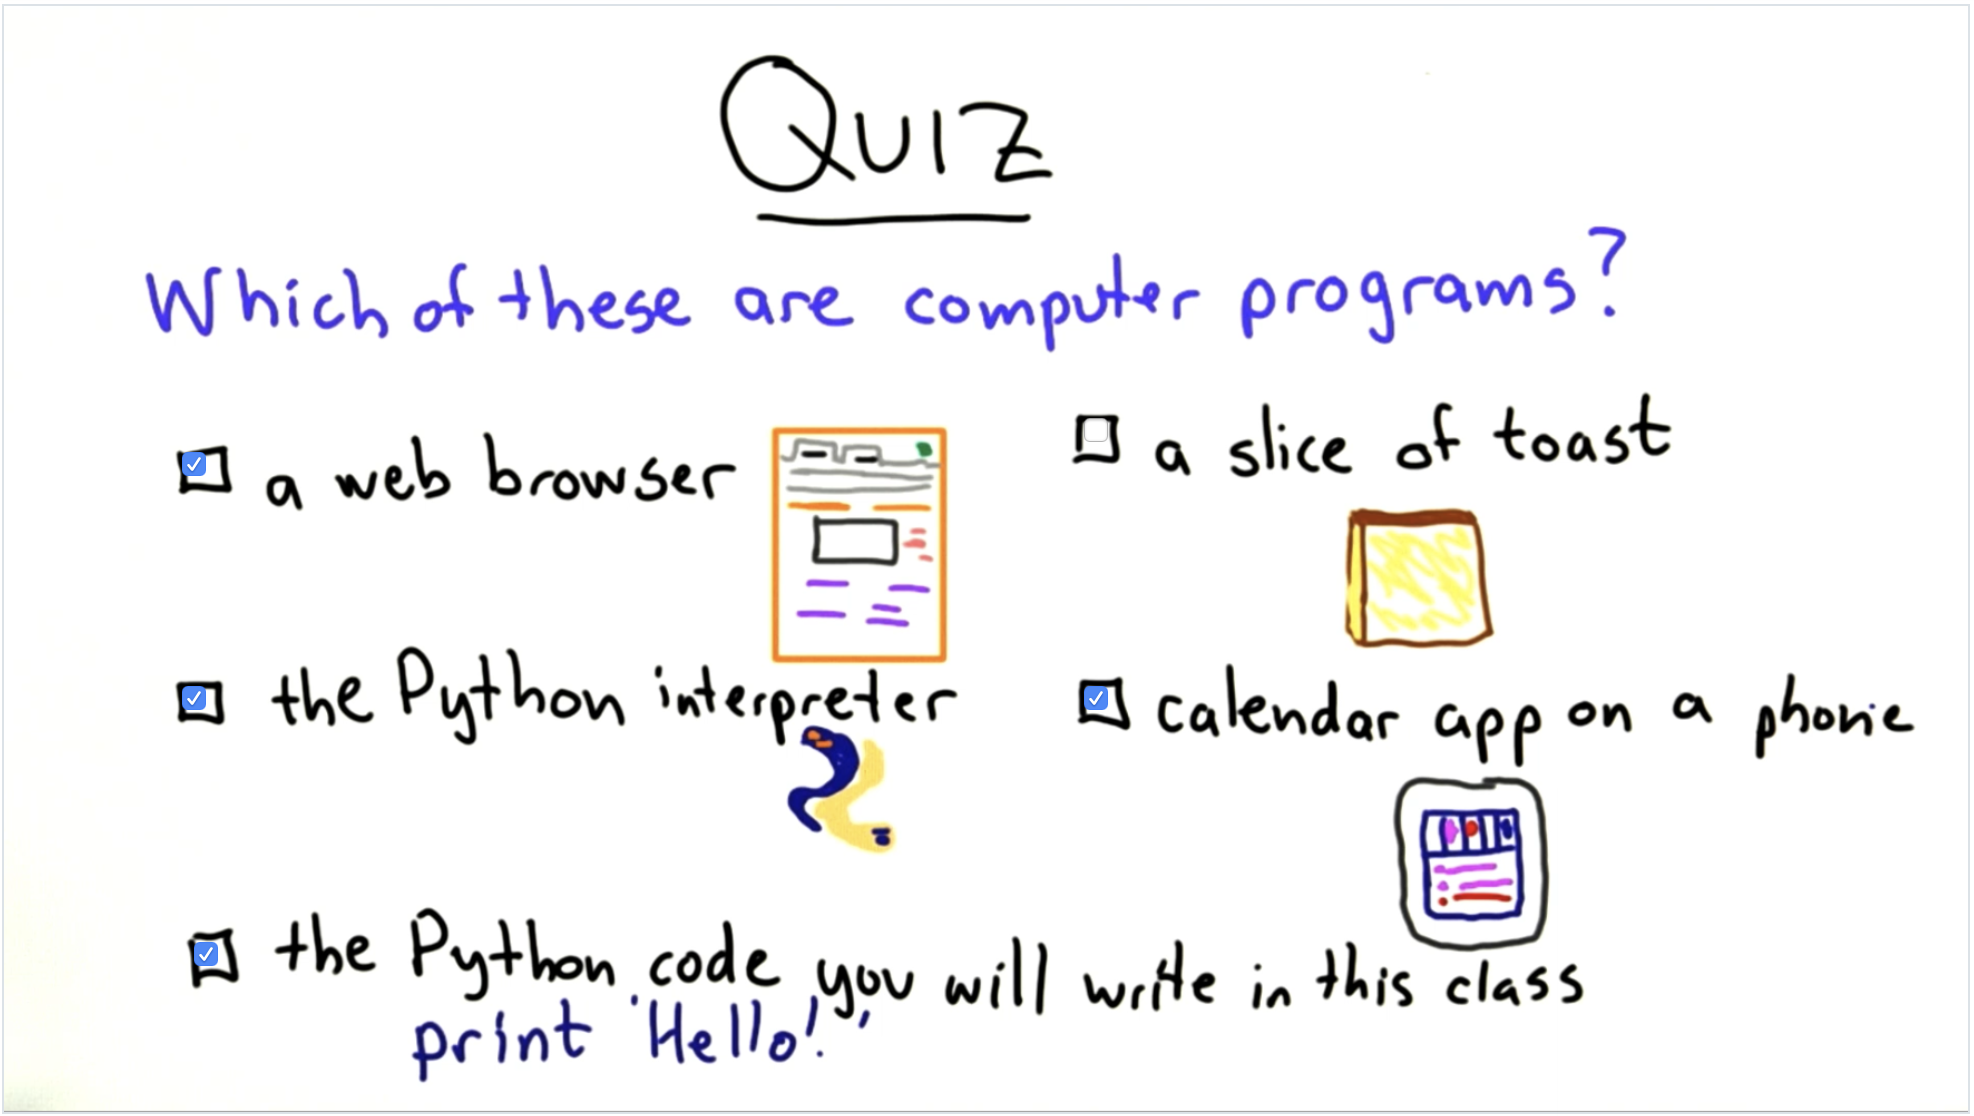 QUIZ
Which of these are computer programs?
a web browser
a slice of toast
the Python interpreter
calendar app on a phone
the Python code you will write in this class
print 'Hello!'